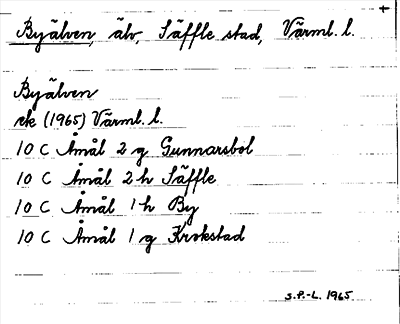 Byälven, älv, Säffle stad, Värml. l.
Byälven
ek (1965) Värml. l.
10 C Åmål 2 g Gunnarsbol
10 C Åmål 2 h Säffle
10 C Åmål 1 h By
10 C Åmål 1 g Krokstad
S.P.-L. 1965